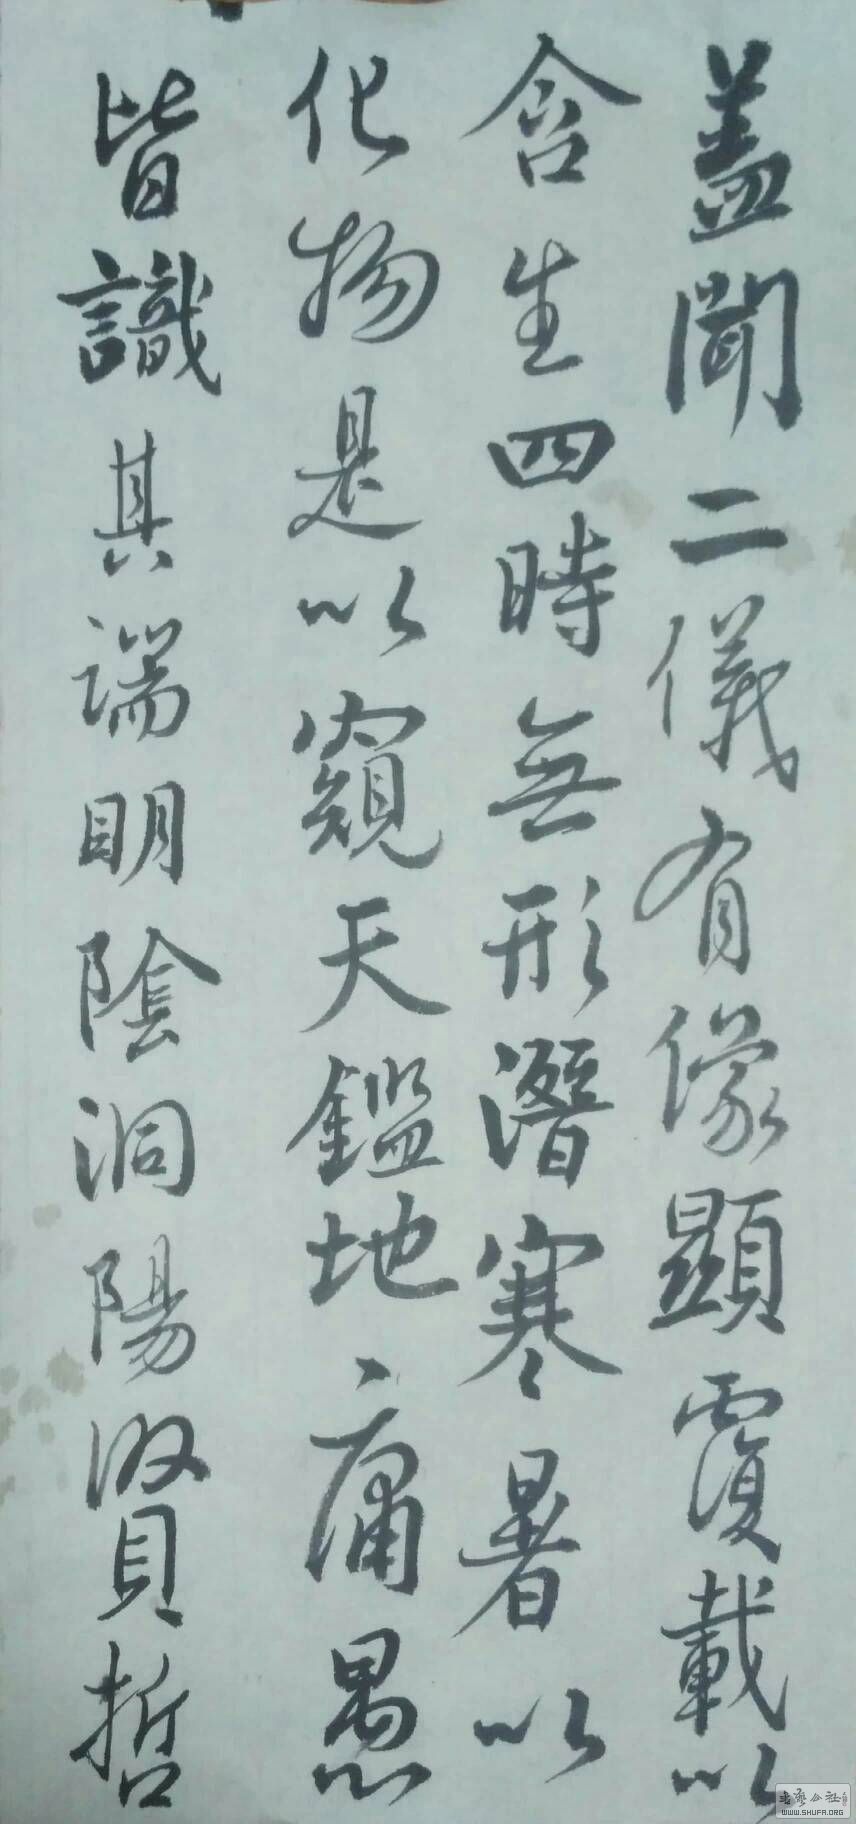 蓋聞二儀有像顯覆載以
含生四時無形潛寒暑以
化物是以窺天鑑地庸愚
皆識其端明陰洞陽賢哲
WWW.SHUFA.ORG